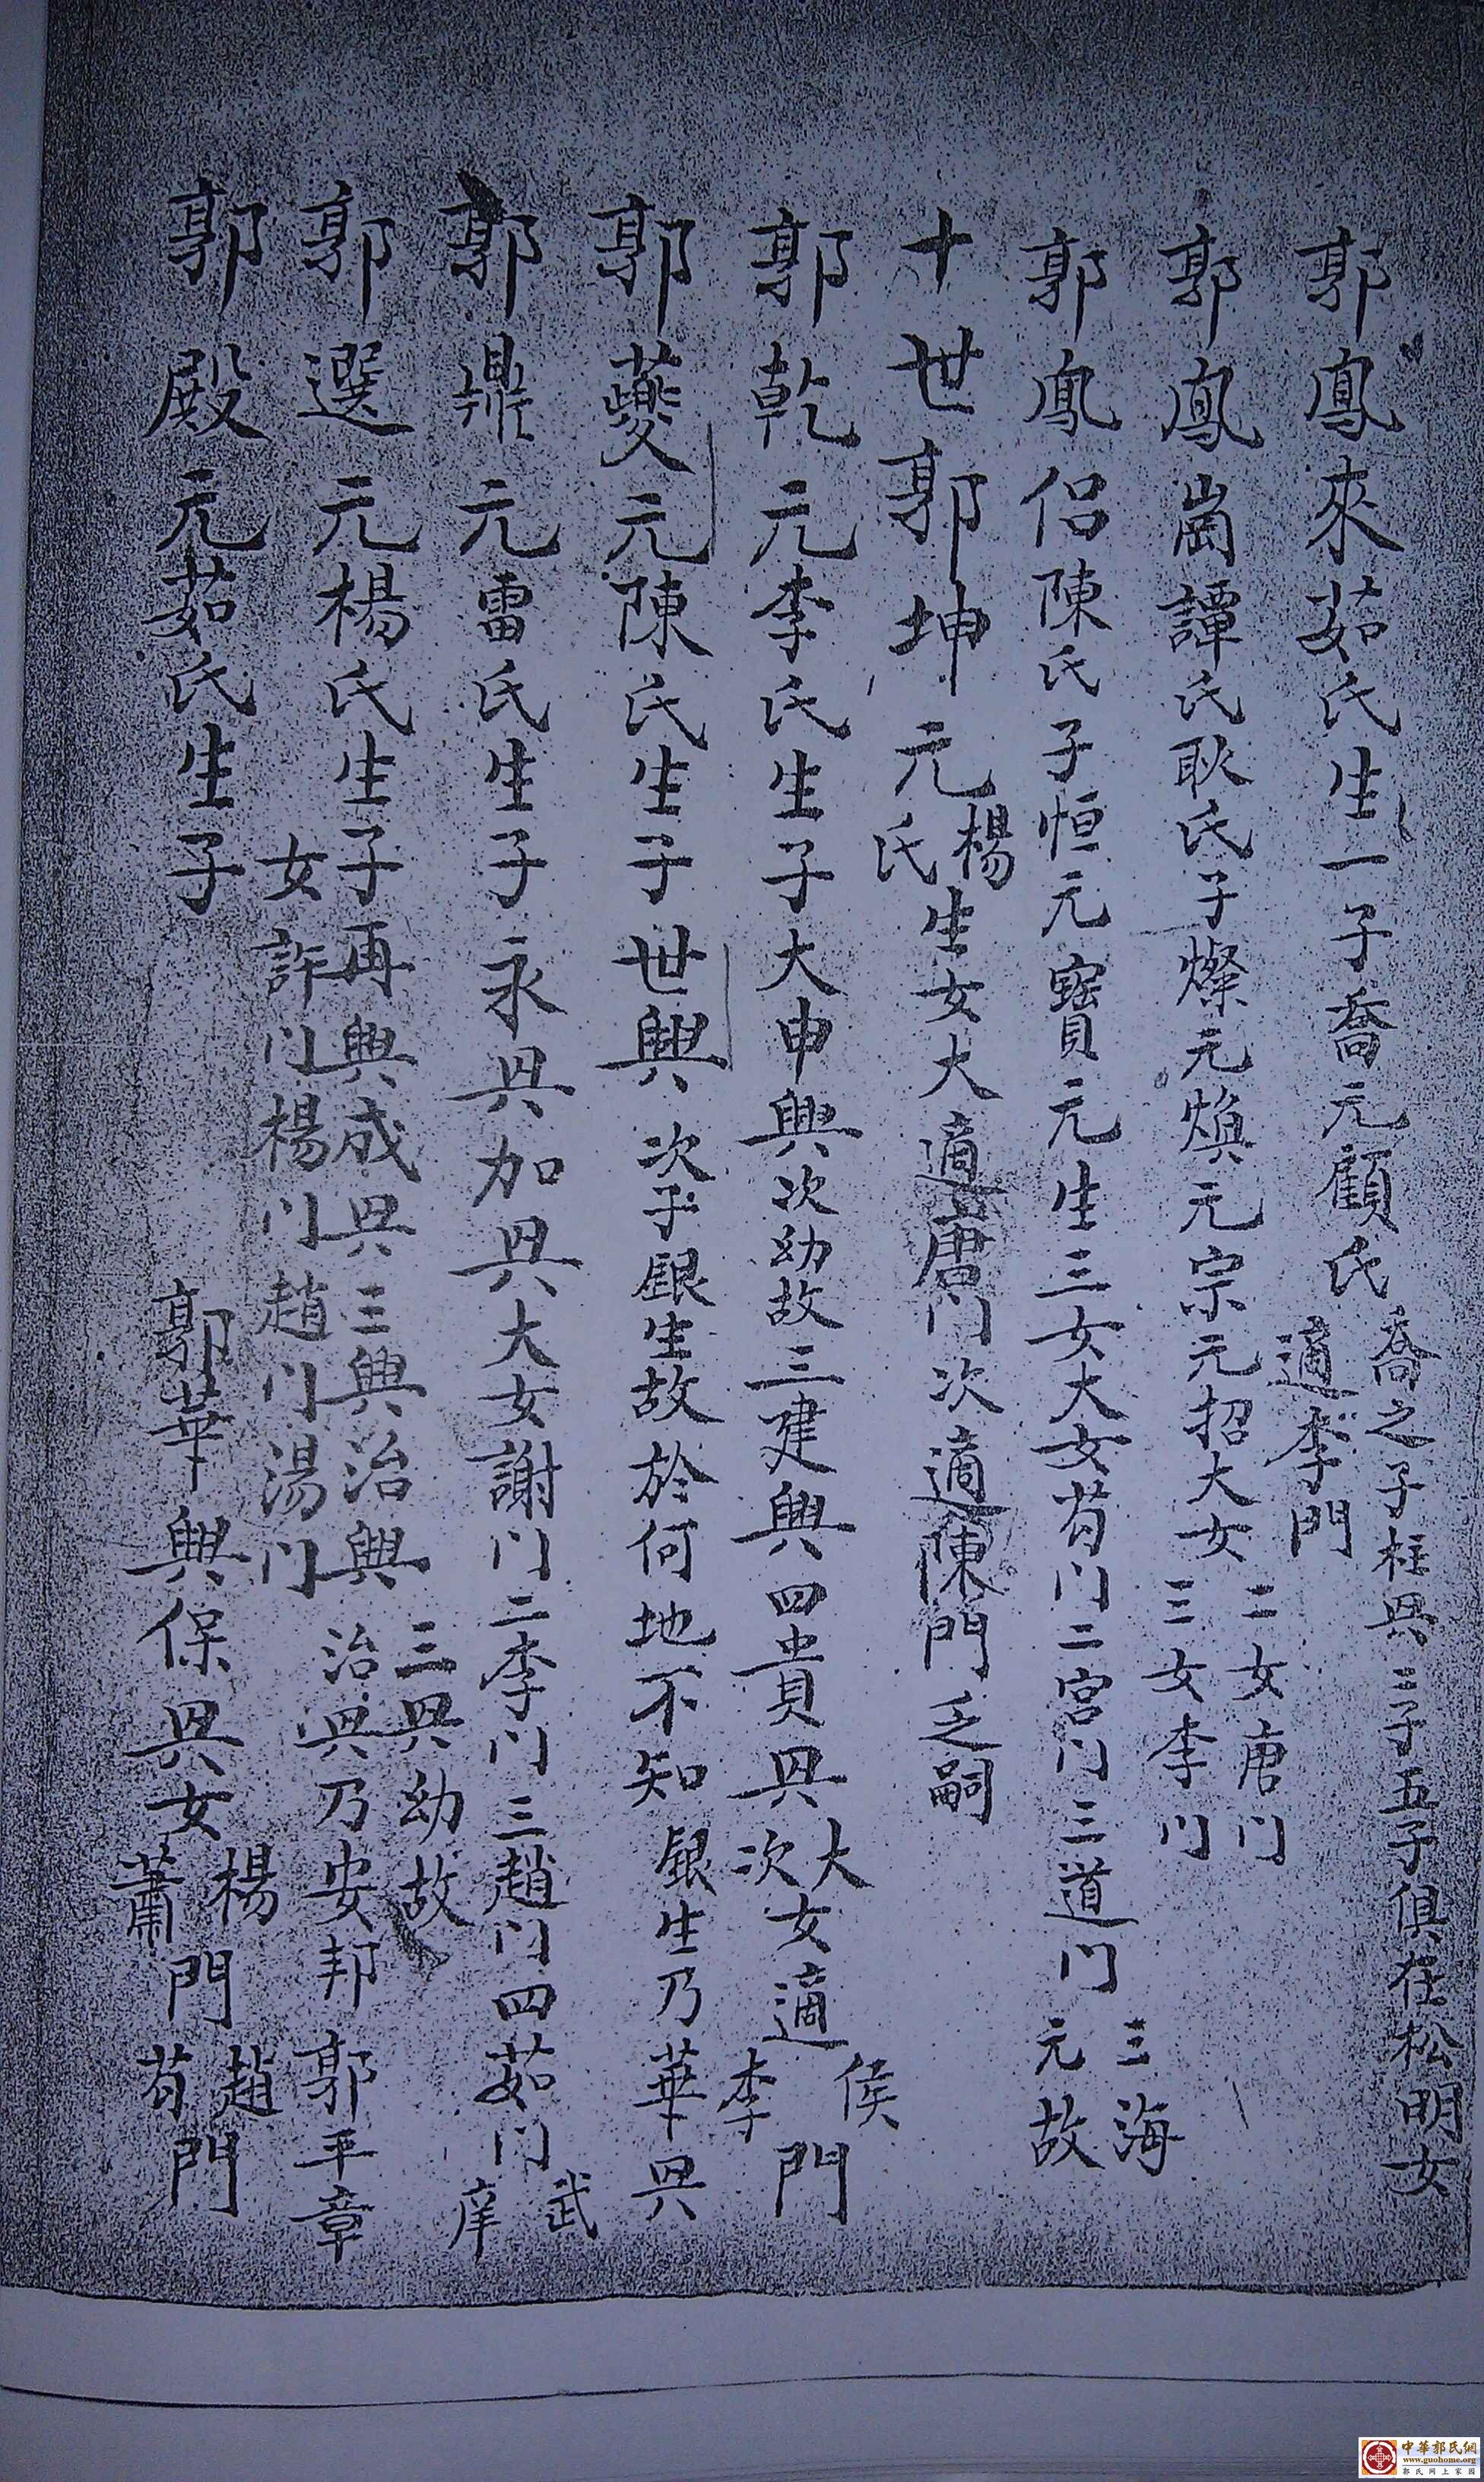 郭鳳來茹氏生一子喬元顧氏
喬之子柱興三子五子俱在松明女
適李門
郭鳳崗譚氏耿氏子燦元煥元宗元招大女
二女唐门
三女李门
郭鳳侣陳氏子恒元寶元生三女大女苟门二宫门三道门
三海
元故
十世郭坤元
楊
氏
生女大適唐门次適陳門乏嗣
郭乾元李氏生子大申興次幼故三建興四貴興
大
次
女適
侯
李
門
郭夔元陳氏生子世興次子銀生故於何地不知銀生乃華興
郭鼎元雷氏生子永興加興大女謝门二李门三趙门四茹门
武
庠
郭選元楊氏生子再興成興三興治興
三興幼故
治興乃安邦郭平章
女許门楊门趙门湯门
郭殿元茹氏生子
郭華興保興女
楊
蕭
門
趙
苟
門
中華郭氏網
www.guohome.org
郭氏网上家园